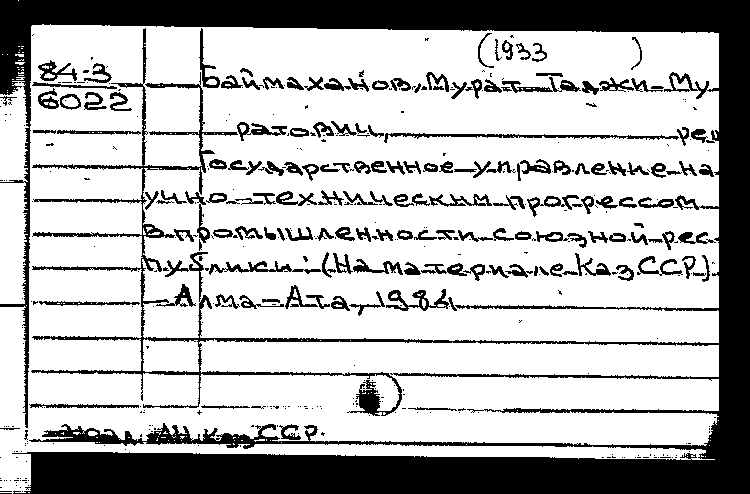 (1933 )
84-3
6022
Баймаханов, Мурат Таджи-Му-
ратович, ред
Государственное управление на-
учно-техническим прогрессом
в промышленности союзной рес-
публики: (На материале Каз ССР)
-Алма-Ата, 1984
АН КазССР.